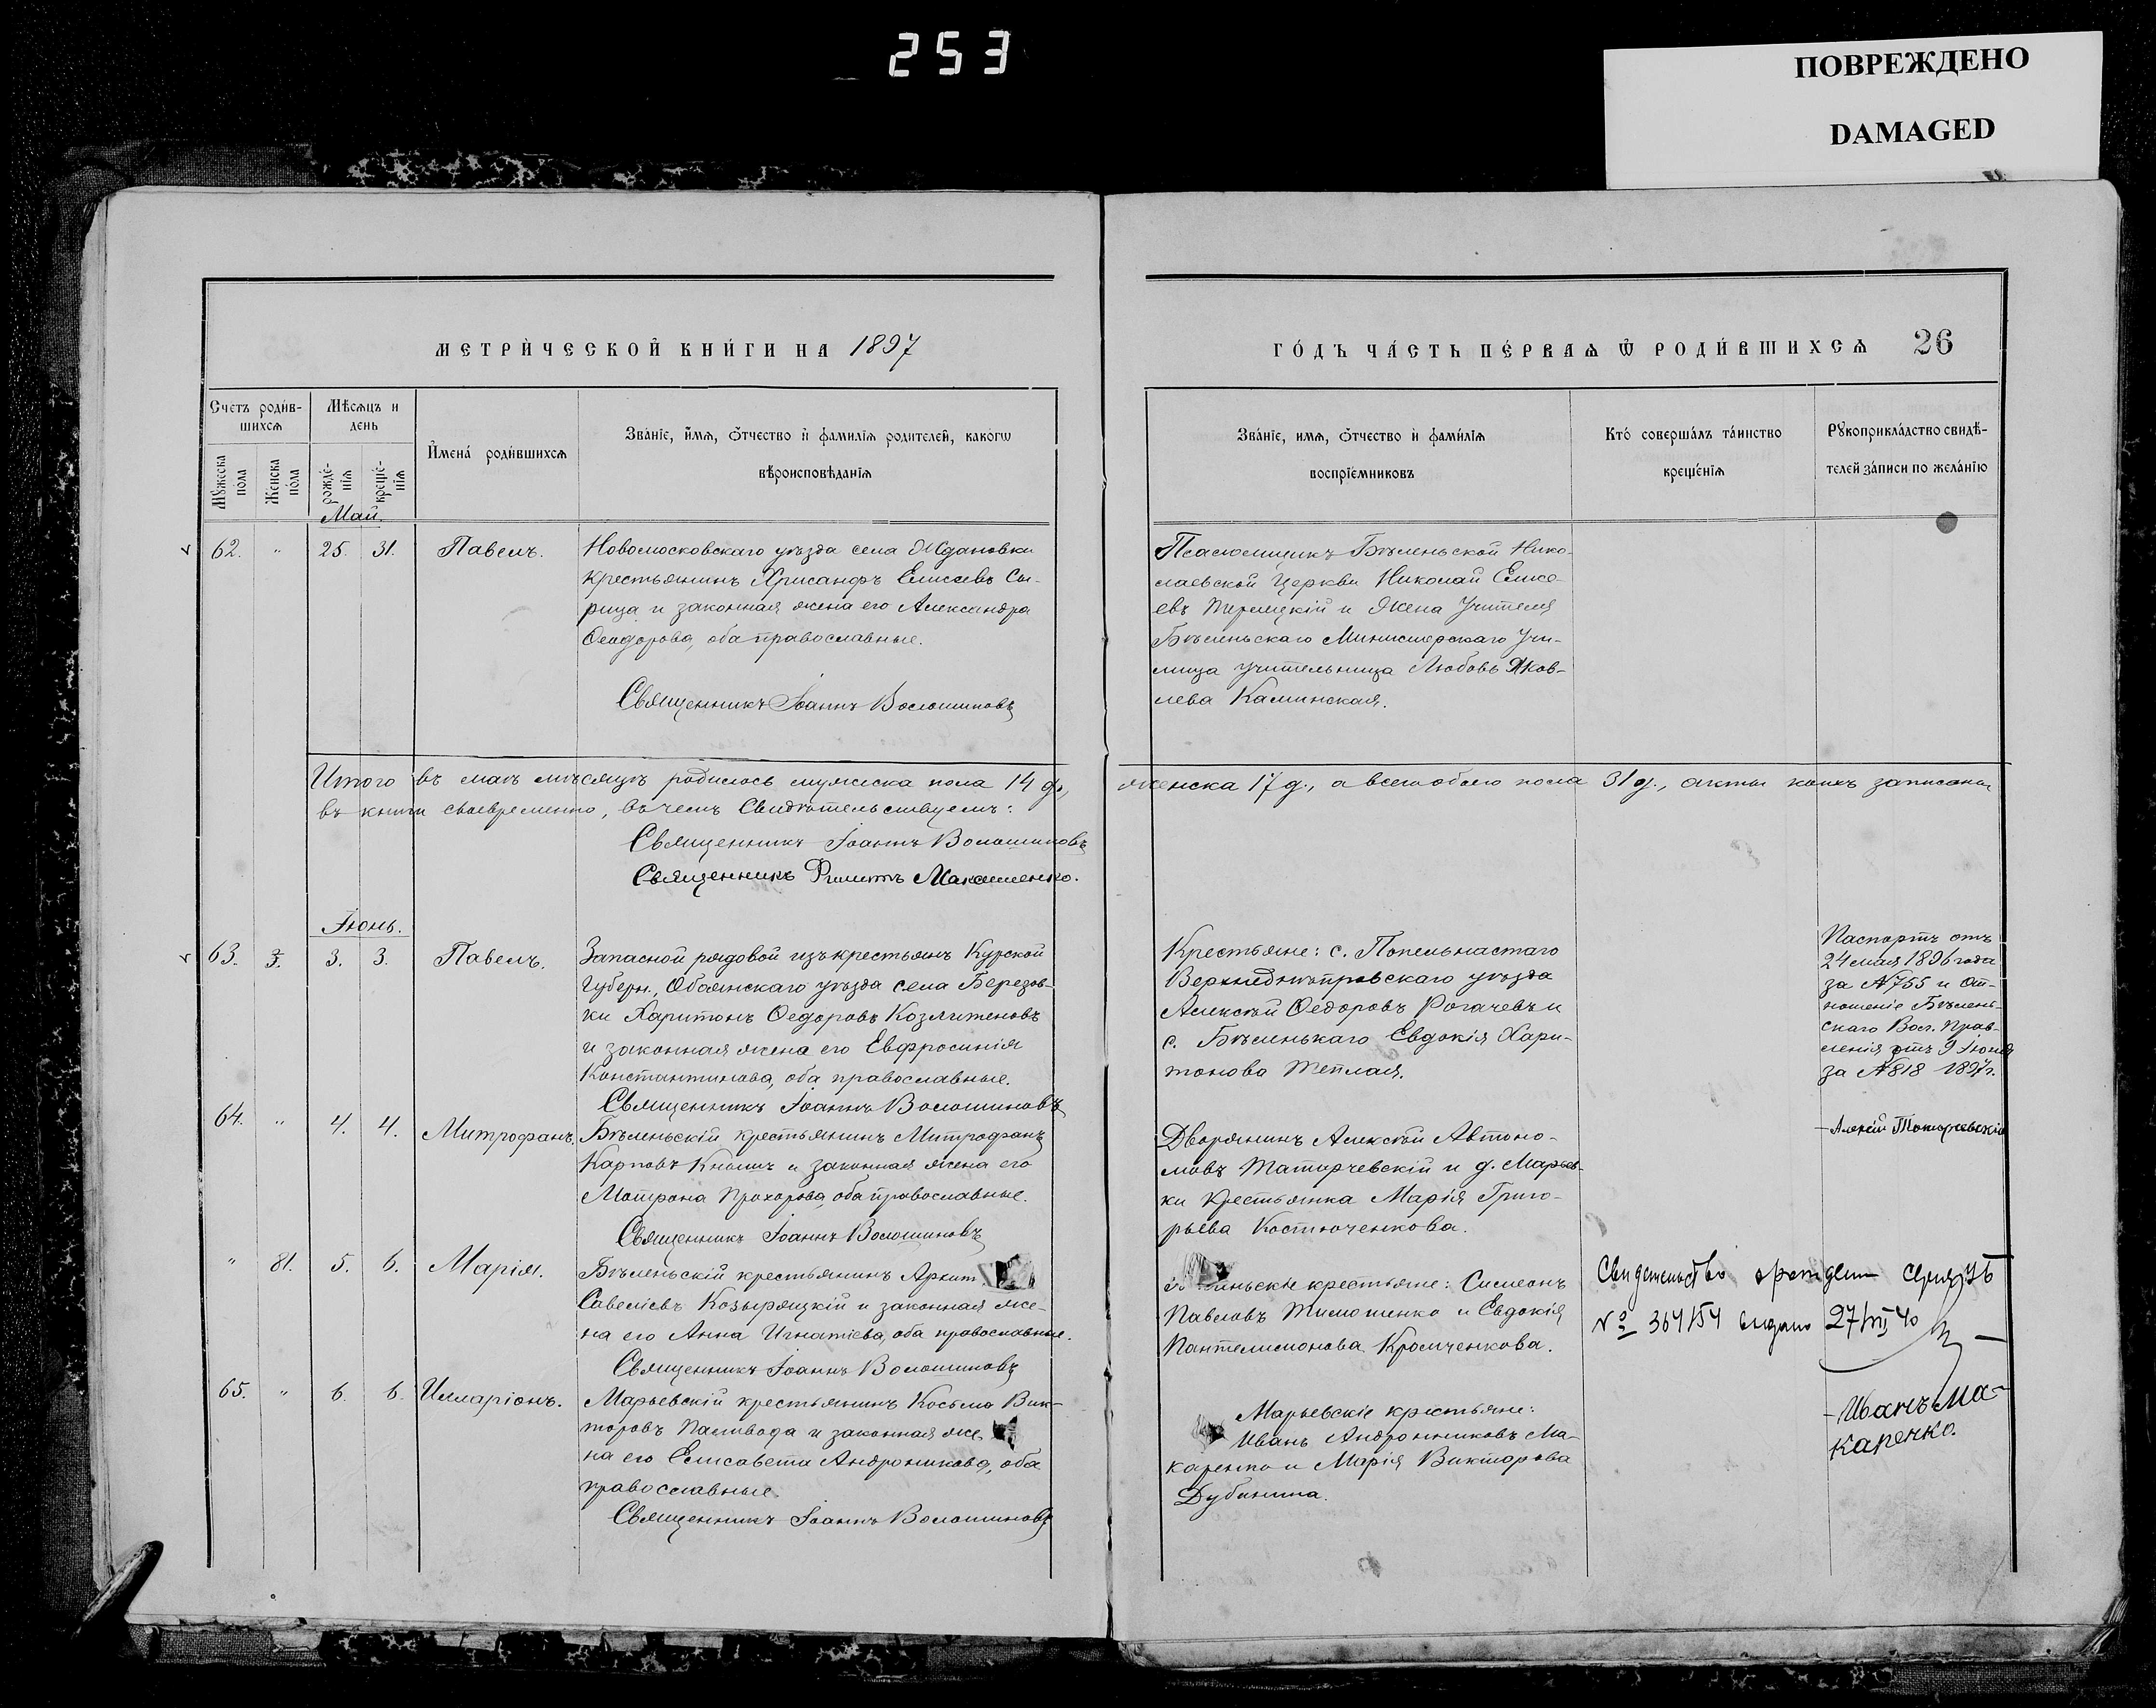 253
ПОВРЕЖДЕНО
DAMAGED
МЕТРИЧЕСКОЙ КНИГИ НА 1897
ГОДЪ ЧАСТЬ ПЕРВАЯ Ѿ РОДИВШИХСЯ 26
Счетъ родив-
шихся
Мѣсяцъ и
день
Имена родившихся
Званіе, имя, отчество и фамилія родителей, какогѡ
вѣроисповѣданія
Мужеска
пола
Женска
пола
рожде-
нія
креще-
нія
Званіе, имя, отчество и фамилія
воспріемниковъ
Кто совершалъ таинство
крещенія
Рукоприкладство свидѣ-
телей записи по желанію
Май.
62. " 25. 31. Павелъ.
Новомосковскаго уѣзда села Ждановки
крестьянинъ Хрисанфъ Елисеевъ Сы-
рица и законная жена его Александра
Ѳеодорова, оба православные.
Священникъ Іоаннъ Волошиновъ
Псаломщикъ Бѣленьской Нико-
лаевской Церкви Николай Елисе-
евъ и Жена Учителя
Бѣленьскаго Министерскаго Учи-
лища учительница Любовь Яков-
лева Калинская.
Итого въ маѣ мѣсяцѣ родилось мужеска пола 14 д., женска 17 д., а всего обоего пола 31 д., акты коихъ записаны
въ книги своевременно, въ чемъ Свидѣтельствуемъ:
Священникъ Іоаннъ Волошиновъ
Священникъ Филиппъ Максименко.
Іюнь.
63. 3. 3. 3. Павелъ.
Запасной рядовой изъ крестьянъ Курской
Губерн., Обоянскаго уѣзда села Березов-
ки Харитонъ Ѳедоровъ Козлитеновъ
и законная жена его Евфросинія
Константинова, оба православные.
Священникъ Іоаннъ Волошиновъ
Крестьяне: с. Попельнастаго
Верхнеднѣпровскаго уѣзда
Алексѣй Ѳедоровъ Рогачевъ и
с. Бѣленькаго Евдокія Хари-
тонова Теплая.
Паспортъ отъ
24 мая 1896 года
за № 755 и От-
ношеніе Бѣлень-
скаго Вол. Прав-
ленія отъ 9 Іюня
за № 818 1897 г.
64. " 4. 4. Митрофанъ.
Бѣленьскій крестьянинъ Митрофанъ
Карповъ Книшъ и законная жена его
Матрона Прохорова, оба православные.
Священникъ Іоаннъ Волошиновъ
Дворянинъ Алексѣй Автоно-
мовъ Таторчевскій и д. Марьев-
ки крестьянка Марія Григо-
рьева Костюченкова.
Алексѣй Таторчевскій
" 81. 5. 6. Марія.
Бѣленьскій крестьянинъ Архип
Савеліевъ Козыряцкій и законная же-
на его Анна Игнатіева, оба православные.
Священникъ Іоаннъ Волошиновъ
крестьяне: Симеонъ
Павловъ Тимошенко и Евдокія
Пантелимонова Кромченкова.
Свидетельство
№ 364154 выдано 27/VII 40
65. " 6. 6. Илларіонъ.
Марьевскій крестьянинъ Косьма Вик-
торовъ Паливода и законная же-
на его Елисавета Андроникова, оба
православные.
Священникъ Іоаннъ Волошиновъ
Марьевскіе крестьяне:
Иванъ Андронниковъ Ма-
каренко и Марія Викторова
Дубинина.
Иванъ Ма-
каренко.